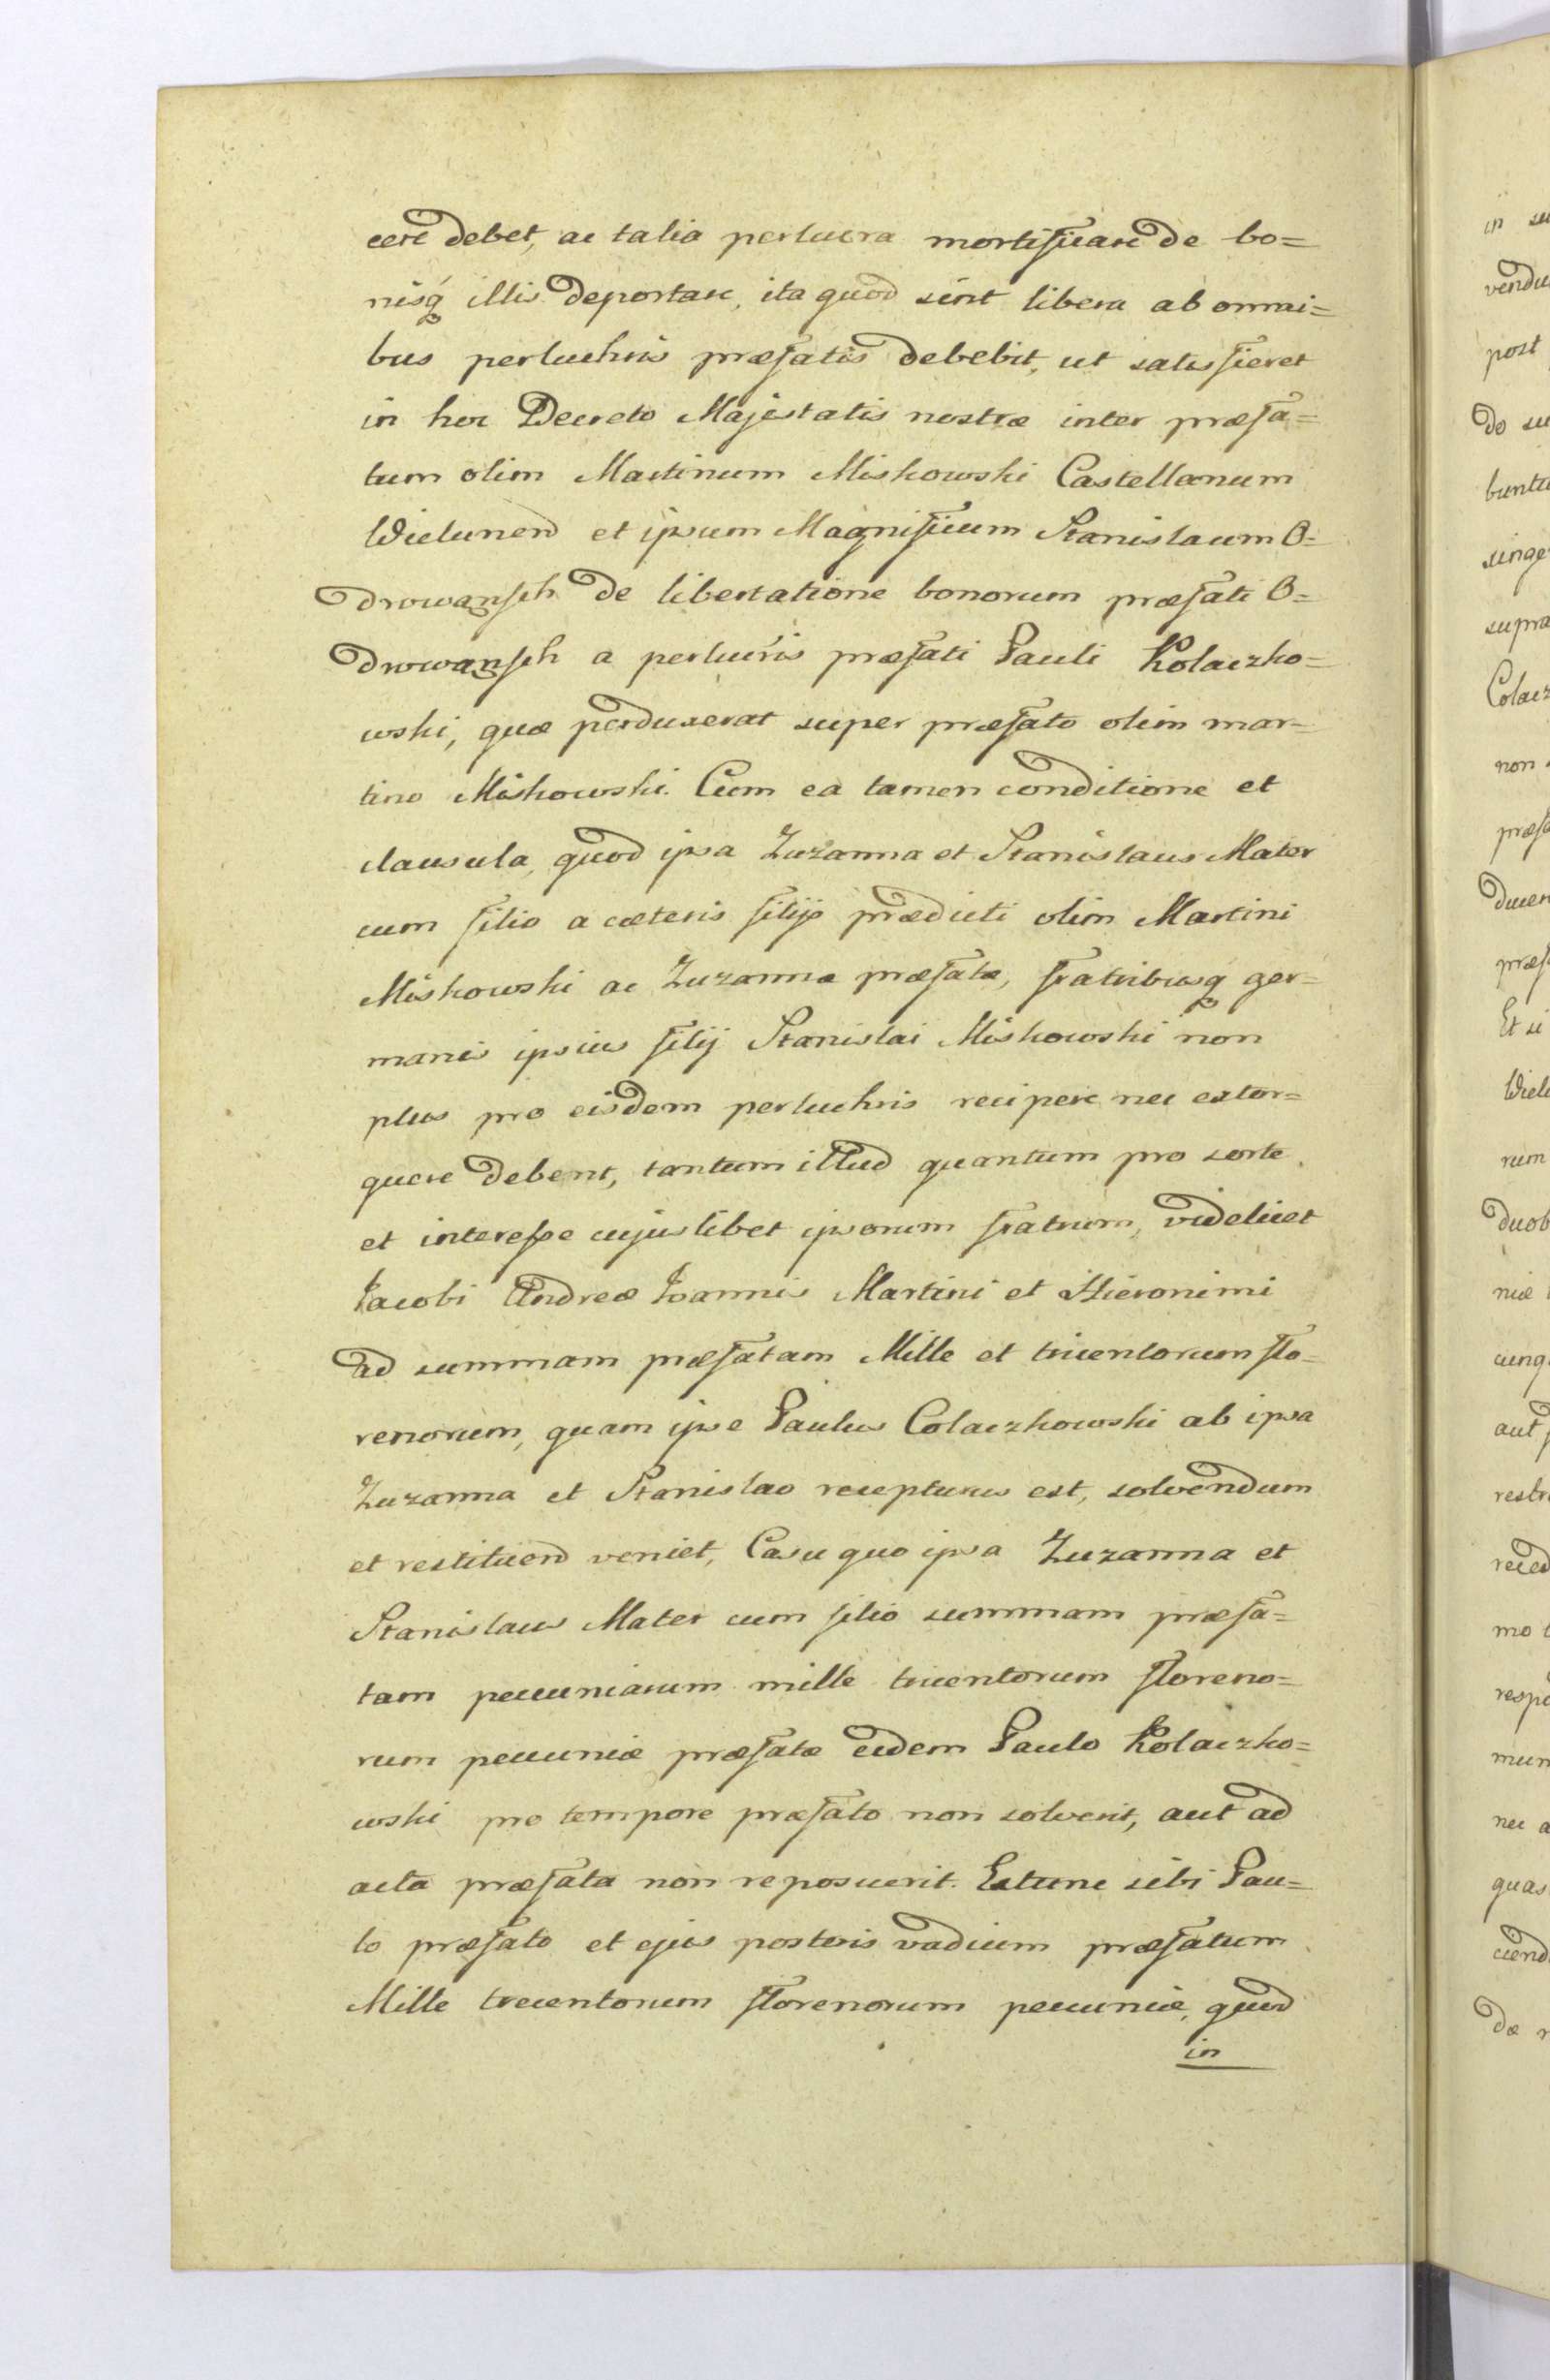 cere debet, ac talia perlucra mortificare de bo=
nisq́ illis deportare, ita quod sint libera ab omni=
bus perluchris præfatis debebit, ut satisfieret
in hoc Decreto Majestatis nostræ inter præfa=
tum olim Martinum Miskowski Castellanum
Wielunen et ipsum Magnificum Stanislaum O=
drowansch de libertatione bonorum præfati O=
drowansch a perlucris præfati Pauli Kolaczko=
wski, quæ perduxerat super præfato olim mar=
tino Miskowski. Cum ea tamen conditione et
clausula, quod ipsa Zuzanna et Stanislaus Mater
cum filio a cæteris filijs prædicti olim Martini
Miskowski ac Zuzannæ præfatæ, fratribusq ger=
manis ipsius filij Stanislai Miskowski non
plus pro eisdem perluchris recipere nec extor=
quere debent, tantum illud quantum pro sorte
et interesse cujuslibet ipsorum fratrum, videlicet
Jacobi Andreæ Joannis Martini et Hieronimi
ad summam præfatam Mille et tricentorum flo=
renorum, quam ipse Paulus Colaczkowski ab ipsa
Zuzanna et Stanislao recepturus est, solvendum
et restituend veniet, Casu quo ipsa Zuzanna et
Stanislaus Mater cum filio summam præfa=
tam pecuniarum mille tricentorum floreno=
rum pecuniæ præfatæ eidem Paulo Kolaczko=
wski pro tempore præfato non solverit, aut ad
acta præfata non reposuerit. Extunc sibi Pau=
lo præfato et ejus posteris vadium præfatum
Mille trecentorum florenorum pecuniæ, quod
in
in su
vendu
post
do su
buntu
singe
supra
Colacz
non
præfa
ducen
præf
Et si
Wiel
rum
duob
niæ
cunq
aut
restr
reced
mo
respo
mun
nec a
quas
ciend
dæ